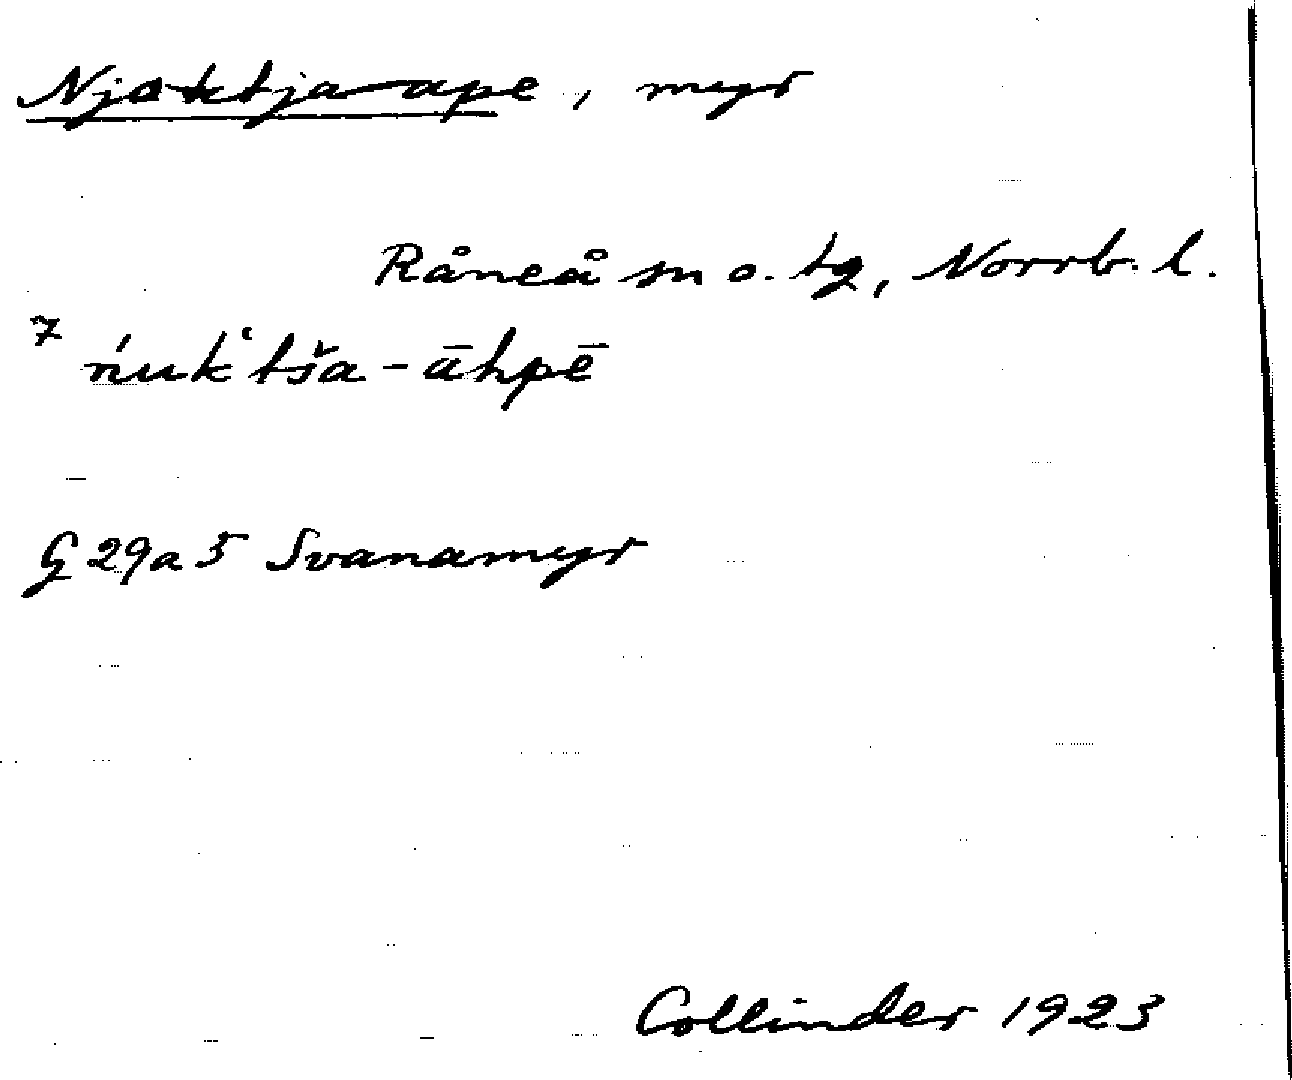 Njoktja-ape, myr
Råneå sn o. tg, Norrb. l.
7 ńukʻtša-āhpē
G 29 a 5 Svanamyr
Collinder 1923